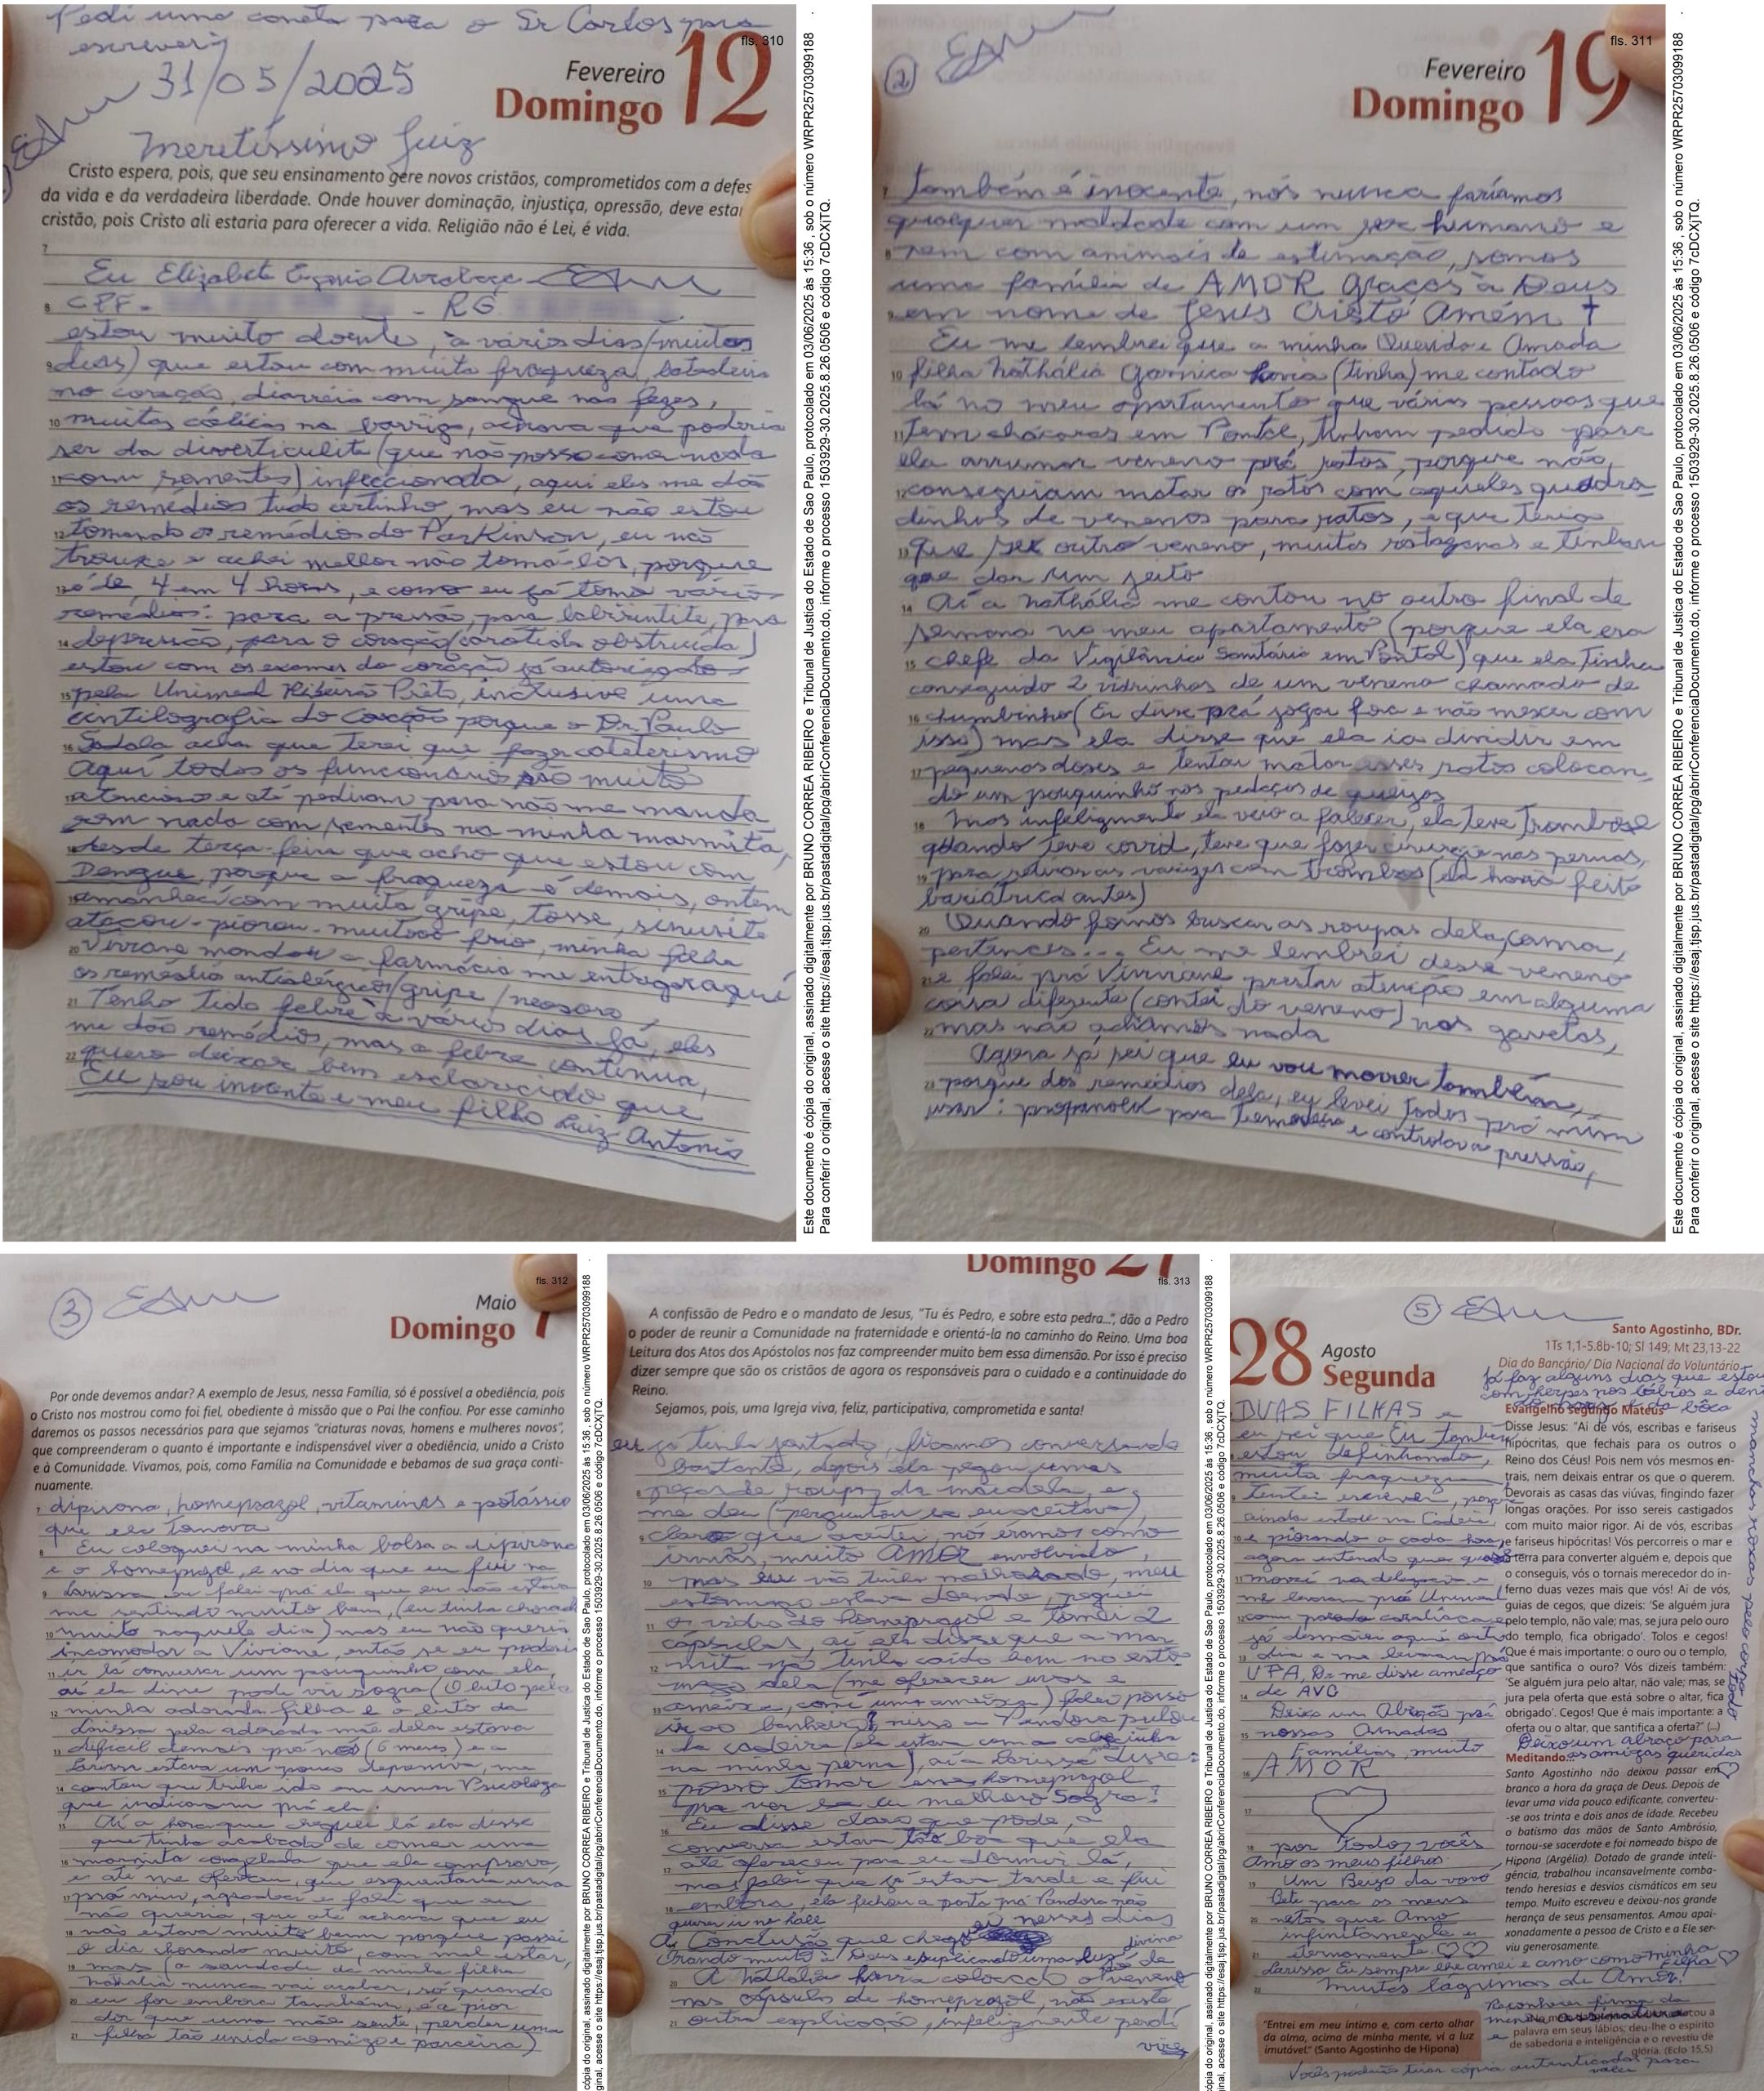 Pedi uma caneta para o Sr Carlos para
escrever
fls. 310
31/05/2025
Fevereiro
Domingo 12
Meretíssimo Juiz
Cristo espera, pois, que seu ensinamento gere novos cristãos, comprometidos com a defes
da vida e da verdadeira liberdade. Onde houver dominação, injustiça, opressão, deve estar
cristão, pois Cristo ali estaria para oferecer a vida. Religião não é Lei, é vida.
7
Eu Elizabete Eugenio Arrabaça
8 CPF - - RG
estou muito doente, à vários dias (muitos
9 dias) que estou com muita fraqueza, batedeira
no coração, diarréia com sangue nas fezes,
10 muitas cólicas na barriga, achava que poderia
ser da diverticulite (que não posso comer nada
11 com sementes) infeccionada, aqui eles me dão
os remédios tudo certinho, mas eu não estou
12 tomando os remédios do Parkinson, eu não
trouxe e achei melhor não tomá-los, porque
13 é de 4 em 4 horas, e como eu já tomo vários
remédios: para a pressão, para labirintite, para
14 depressão, para o coração (carótida obstruída)
estou com os exames do coração já autorizado
15 pela Unimed Ribeirão Preto, inclusive uma
cintilografia do coração porque o Dr. Paulo
16 acha que terei que fazer cateterismo
Aqui todos os funcionários são muito
17 atenciosos e até pediram para não me manda
rem nada com sementes na minha marmita,
18 desde terça-feira que acho que estou com
Dengue, porque a fraqueza é demais, ontem
19 amanheci com muita gripe, tosse, sinusite
atacou - piorou - muitooo frio, minha filha
20 Viviane mandou a farmácia me entregar aqui
os remédios antialérgicos/gripe/
21 Tenho tido febre à vários dias já, eles
me dão remédios, mas a febre continua,
22 quero deixar bem esclarecido que
Eu sou inocente e meu filho Luiz Antonio
Este documento é cópia do original, assinado digitalmente por BRUNO CORREA RIBEIRO e Tribunal de Justica do Estado de Sao Paulo, protocolado em 03/06/2025 às 15:36 , sob o número WRPR25703099188 .
Para conferir o original, acesse o site https://esaj.tjsp.jus.br/pastadigital/pg/abrirConferenciaDocumento.do, informe o processo 1503929-30.2025.8.26.0506 e código 7cDCXjTQ.
2
fls. 311
Fevereiro
Domingo 19
7 também é inocente, nós nunca faríamos
qualquer maldade com um ser humano e
8 nem com animais de estimação, somos
uma família de AMOR Graças à Deus
9 em nome de Jesus Cristo Amém †
Eu me lembrei que a minha Querida e Amada
10 filha Nathália Garnica havia (tinha) me contado
lá no meu apartamento que várias pessoas que
11 tem chácaras em Pontal, tinham pedido para
ela arrumar veneno prá ratos, porque não
12 conseguiam matar os ratos com aqueles quadra
dinhos de venenos para ratos, e que teria
13 que ser outro veneno, muitas ratazanas e tinham
que dar um jeito
14 Aí a Nathália me contou no outro final de
semana no meu apartamento (porque ela era
15 chefe da Vigilância Sanitária em Pontal) que ela tinha
conseguido 2 vidrinhos de um veneno chamado de
16 chumbinho (Eu disse prá jogar fora e não mexer com
isso) mas ela disse que ela ia dividir em
17 pequenas doses e tentar matar esses ratos colocan
do um pouquinho nos pedaços de queijos
18 Mas infelizmente ela veio a falecer, ela teve Trombose
quando teve covid, teve que fazer cirurgia nas pernas,
19 para retirar as varizes com trombos (ela havia feito
bariátrica antes)
20 Quando fomos buscar as roupas dela, cama,
pertences... Eu me lembrei desse veneno
21 e falei prá Viviane prestar atenção em alguma
coisa diferente (contei do veneno) nas gavetas,
22 mas não achamos nada
Agora já sei que eu vou morrer também,
23 porque dos remédios dela, eu levei todos prá mim
usar: propanolol para tremedeira e controlava pressão,
Este documento é cópia do original, assinado digitalmente por BRUNO CORREA RIBEIRO e Tribunal de Justica do Estado de Sao Paulo, protocolado em 03/06/2025 às 15:36 , sob o número WRPR25703099188 .
Para conferir o original, acesse o site https://esaj.tjsp.jus.br/pastadigital/pg/abrirConferenciaDocumento.do, informe o processo 1503929-30.2025.8.26.0506 e código 7cDCXjTQ.
3
fls. 312
Maio
Domingo 7
Por onde devemos andar? A exemplo de Jesus, nessa Família, só é possível a obediência, pois
o Cristo nos mostrou como foi fiel, obediente à missão que o Pai lhe confiou. Por esse caminho
daremos os passos necessários para que sejamos "criaturas novas, homens e mulheres novos",
que compreenderam o quanto é importante e indispensável viver a obediência, unido a Cristo
e à Comunidade. Vivamos, pois, como Família na Comunidade e bebamos de sua graça conti-
nuamente.
7 dipirona, homeprazol, vitaminas e potássio
que ela tomava
8 Eu coloquei na minha bolsa a dipirona
e o homeprazol, e no dia que eu fui na
9 Larissa eu falei prá ela que eu não estava
me sentindo muito bem, (eu tinha chorado
10 muito naquele dia) mas eu não queria
incomodar a Viviane, então se eu poderia
11 ir lá conversar um pouquinho com ela,
aí ela disse pode vir sogra (O luto pela
12 minha adorada filha e o luto da
Larissa pela adorada mãe dela estava
13 difícil demais prá nós (6 meses) e a
Larissa estava um pouco depressiva, me
14 contou que tinha ido em uma Psicóloga
que indicaram prá ela.
15 Aí a hora que cheguei lá ela disse
que tinha acabado de comer uma
16 marmita congelada que ela comprava,
e até me ofertou, que esquentaria uma
17 prá mim, agradeci e falei que eu
não queria, que até achava que eu
18 não estava muito bem porque passei
o dia chorando muito, com mal estar,
19 mas (a saudade de minha filha
Nathália nunca vai acabar, só quando
20 eu for embora também, é a pior
dor que uma mãe sente, perder uma
21 filha tão unida comigo e parceira)
cópia do original, assinado digitalmente por BRUNO CORREA RIBEIRO e Tribunal de Justica do Estado de Sao Paulo, protocolado em 03/06/2025 às 15:36 , sob o número WRPR25703099188 .
ginal, acesse o site https://esaj.tjsp.jus.br/pastadigital/pg/abrirConferenciaDocumento.do, informe o processo 1503929-30.2025.8.26.0506 e código 7cDCXjTQ.
Domingo 21
fls. 313
A confissão de Pedro e o mandato de Jesus, "Tu és Pedro, e sobre esta pedra...", dão a Pedro
o poder de reunir a Comunidade na fraternidade e orientá-la no caminho do Reino. Uma boa
Leitura dos Atos dos Apóstolos nos faz compreender muito bem essa dimensão. Por isso é preciso
dizer sempre que são os cristãos de agora os responsáveis para o cuidado e a continuidade do
Reino.
Sejamos, pois, uma Igreja viva, feliz, participativa, comprometida e santa!
eu já tinha jantado, ficamos conversando
bastante, depois ela pegou umas
8 peças de roupas da mãe dela, e
me deu (perguntou se eu aceitava)
9 claro que aceitei, nós éramos como
irmãs, muito AMOR envolvido,
10 mas eu não tinha melhorado, meu
estômago estava doendo, peguei
11 o vidro do homeprazol e tomei 2
cápsulas, aí ela disse que a mar
12 mita não tinha caído bem no estô
mago dela (me ofereceu uvas e
13 ameixa, comi uma ameixa) falei posso
ir ao banheiro?, nisso a Pandora pulou
14 da cadeira (ela estava com a cabecinha
na minha perna), aí a Larissa disse:
15 posso tomar esse homeprazol
pra ver se eu melhoro Sogra?
16 Eu disse claro que pode, a
conversa estava tão boa que ela
17 até ofereceu para eu dormir lá,
mas falei que já estava tarde e fui
18 embora, ela fechou a porta prá Pandora não
querer ir no hall
A Conclusão que chego eu nesses dias
Orando muito à Deus e suplicando uma luz divina é de
20 A Nathália havia colocado o veneno
nas cápsulas de homeprazol, não existe
21 outra explicação, infelizmente perdi
vire
cópia do original, assinado digitalmente por BRUNO CORREA RIBEIRO e Tribunal de Justica do Estado de Sao Paulo, protocolado em 03/06/2025 às 15:36 , sob o número WRPR25703099188 .
ginal, acesse o site https://esaj.tjsp.jus.br/pastadigital/pg/abrirConferenciaDocumento.do, informe o processo 1503929-30.2025.8.26.0506 e código 7cDCXjTQ.
5
28 Agosto
Segunda
Santo Agostinho, BDr.
1Ts 1,1-5.8b-10; Sl 149; Mt 23,13-22
Dia do Bancário/ Dia Nacional do Voluntário
Já faz alguns dias que estou
com herpes nos lábios e dentro
da boca
manchas roxas pelo corpo todo
DUAS FILHAS e
eu sei que Eu também
estou definhando,
muita fraqueza
tentei escrever, porque
ainda estou na Cadeia
10 e piorando a cada hora
agora entendo que quase
11 morri na delegacia e
me levaram prá Unimed
12 com parada cardíaca e
já desmaiei aqui outro
13 dia e me levaram pra
UPA, Dr me disse ameaça
14 de AVC
Deixo um Abração prá
15 nossas Amadas
Famílias, muito
16 AMOR
17
18 por todos vocês
Amo os meus filhos
19 Um Beijo da vovó
Bete para os meus
20 netos que Amo
infinitamente e
21 eternamente. ♡♡
Larissa Eu sempre lhe amei e amo como minha Filha ♡
22 muitas lágrimas de Amor!
Evangelho segundo Mateus
Disse Jesus: "Ai de vós, escribas e fariseus
hipócritas, que fechais para os outros o
Reino dos Céus! Pois nem vós mesmos en-
trais, nem deixais entrar os que o querem.
Devorais as casas das viúvas, fingindo fazer
longas orações. Por isso sereis castigados
com muito maior rigor. Ai de vós, escribas
e fariseus hipócritas! Vós percorreis o mar e
a terra para converter alguém e, depois que
o conseguis, vós o tornais merecedor do in-
ferno duas vezes mais que vós! Ai de vós,
guias de cegos, que dizeis: 'Se alguém jura
pelo templo, não vale; mas, se jura pelo ouro
do templo, fica obrigado'. Tolos e cegos!
Que é mais importante: o ouro ou o templo,
que santifica o ouro? Vós dizeis também:
'Se alguém jura pelo altar, não vale; mas, se
jura pela oferta que está sobre o altar, fica
obrigado'. Cegos! Que é mais importante: a
oferta ou o altar, que santifica a oferta?" (...)
Deixo um abraço para
as amigas queridas ♡
Meditando...
Santo Agostinho não deixou passar em
branco a hora da graça de Deus. Depois de
levar uma vida pouco edificante, converteu-
-se aos trinta e dois anos de idade. Recebeu
o batismo das mãos de Santo Ambrósio,
tornou-se sacerdote e foi nomeado bispo de
Hipona (Argélia). Dotado de grande inteli-
gência, trabalhou incansavelmente comba-
tendo heresias e desvios cismáticos em seu
tempo. Muito escreveu e deixou-nos grande
herança de seus pensamentos. Amou apai-
xonadamente a pessoa de Cristo e a Ele ser-
viu generosamente.
"Entrei em meu íntimo e, com certo olhar
da alma, acima de minha mente, vi a luz
imutável." (Santo Agostinho de Hipona)
Reconhecer firma da
minha assinatura
palavra em seus lábios; deu-lhe o espírito
de sabedoria e inteligência e o revestiu de
glória. (Eclo 15,5)
Vocês poderão tirar cópia autenticadas para valer